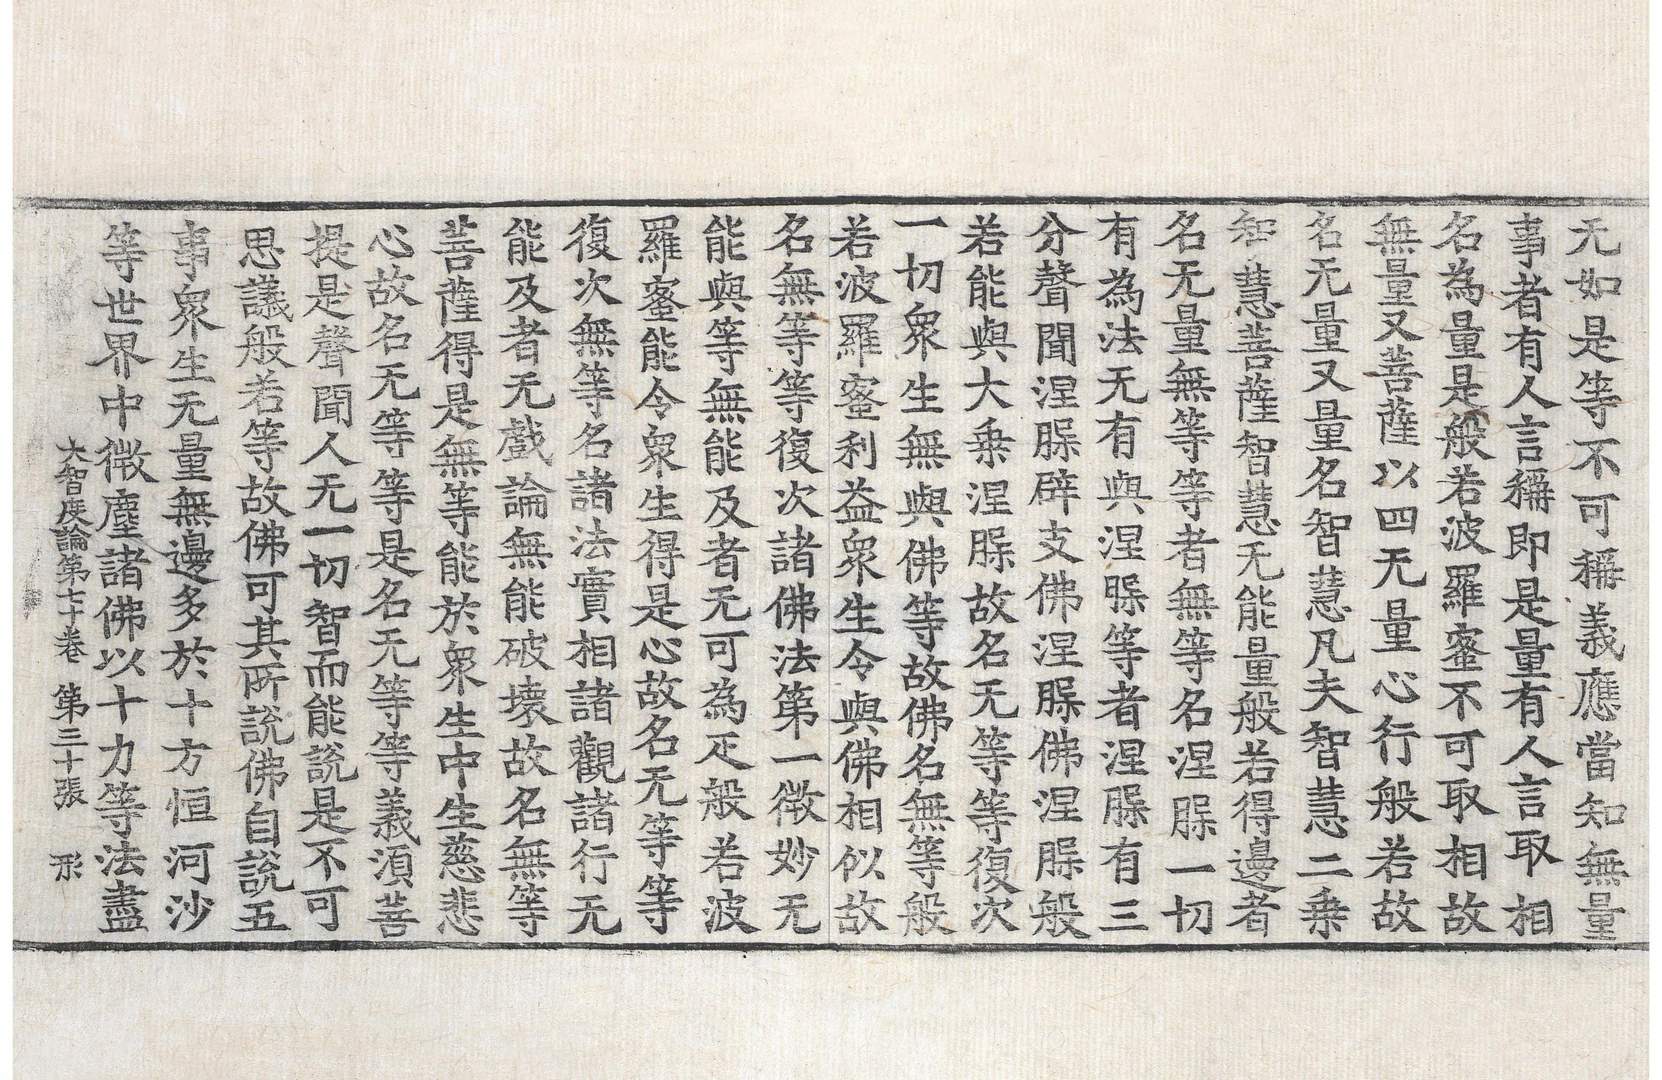 无如是等不可稱義應當知無量
事者有人言稱即是量有人言取相
名為量是般若波羅蜜不可取相故
無量又菩薩以四无量心行般若故
名无量又量名智慧凡夫智慧二乗
知慧菩薩智慧无能量般若得邊者
名无量無等等者無等名涅䏶一切
有為法无有與涅䏶等者涅䏶有三
分聲聞涅䏶辟支佛涅䏶佛涅䏶般
若能與大乗涅䏶故名无等等復次
一切衆生無與佛等故佛名無等般
若波羅蜜利益衆生令與佛相似故
名無等等復次諸佛法第一微妙无
能與等無能及者无可為疋般若波
羅蜜能令衆生得是心故名无等等
復次無等名諸法實相諸觀諸行无
能及者无戲論無能破壞故名無等
菩薩得是無等能於衆生中生慈悲
心故名无等等是名无等等義湏菩
提是聲聞人无一切智而能說是不可
思議般若等故佛可其所說佛自說五
事衆生无量無邊多於十方恒河沙
等世界中微塵諸佛以十力等法盡
大智度論第七十卷 第三十張 形